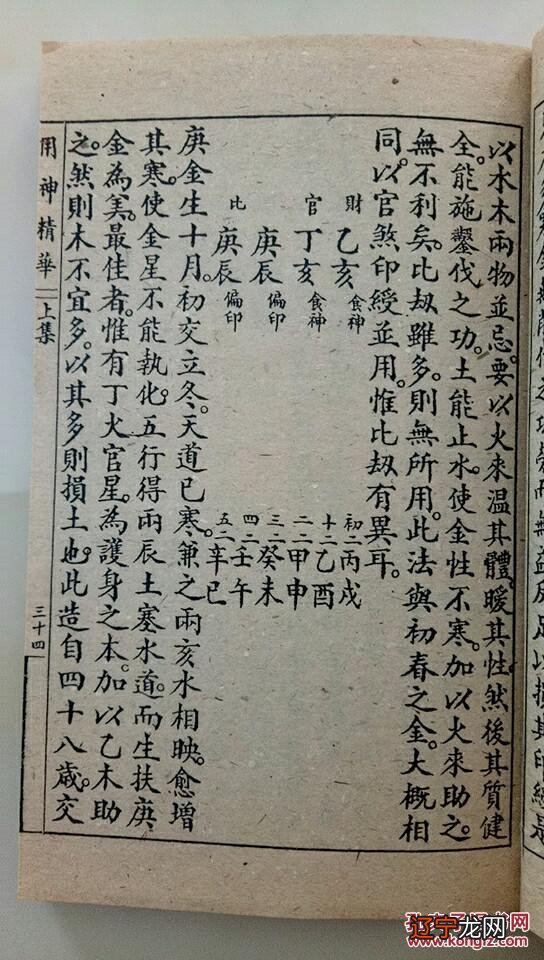 以水木兩物並忌。要以火來温其體。暖其性。然後其質健
全。能施鑿伐之功。土能止水。使金性不寒。加以火來助之。
無不利矣。比刼雖多。則無所用。此法與初春之金。大概相
同。以官煞印綬並用。惟比刼有異耳。
財 乙亥 食神 初二丙戌
官 丁亥 食神 十二乙酉
庚辰 偏印 二二甲申
比 庚辰 偏印 三二癸未
四二壬午
五二辛巳
庚金生十月。初交立冬。天道已寒。兼之兩亥水相映。愈增
其寒。使金星不能執化。五行得兩辰土塞水道。而生扶庚
金為美。最佳者。惟有丁火官星。為護身之本。加以乙木助
之。然則木不宜多。以其多則損土也。此造自四十八歲。交
用神精華 上集 三十四
辽宁龙网
www.kongfz.com